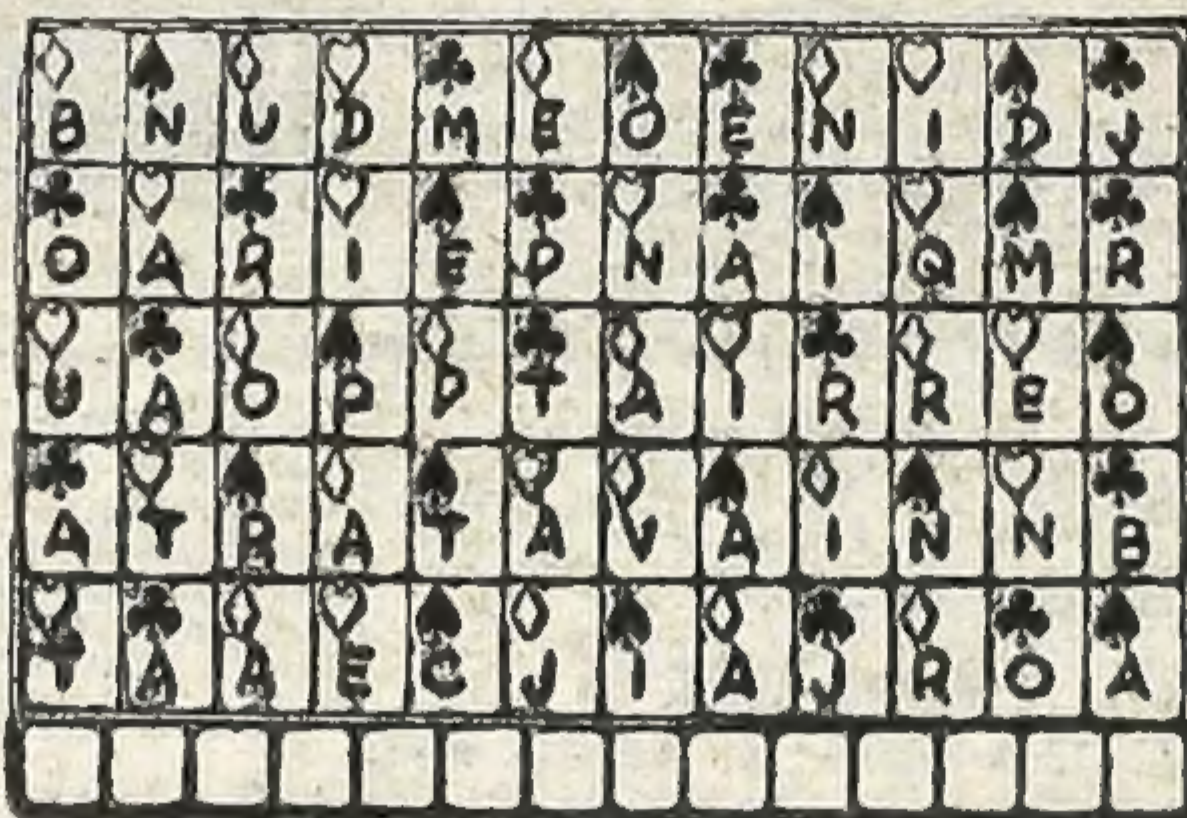 B N U D M E O E N I D J
O A R I E P N A I Q M R
U A O P P T A I R R e O
A T R A T A V A I N N B
T A A E C J I A J R O A